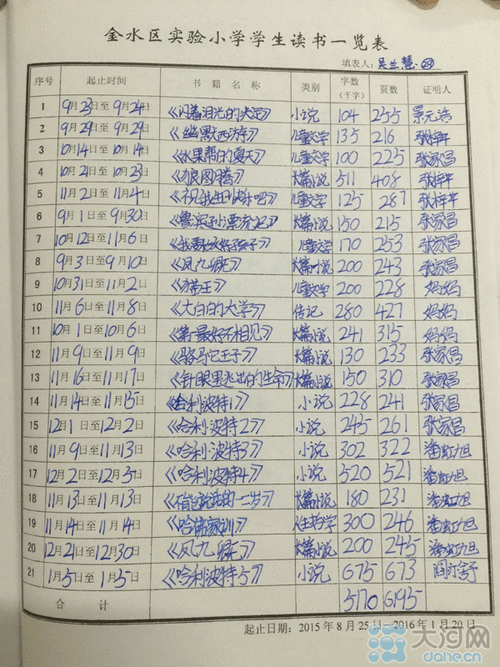 金水区实验小学学生读书一览表
填表人：吴兰慧
序号 起止时间 书籍名称 类别 字数（千字） 页数 证明人
1 9月23日至9月24日 《闪着泪光的决定》 小说 104 255
2 9月29日至9月29日 《幽默西游》 儿童文学 135 216
3 10月14日至10月14日 《水果帮的夏天》 儿童文学 100 225 张家昌
4 10月21日至10月23日 《狼图腾》 长篇小说 511 408 张家昌
5 11月2日至11月4日 儿童文学 125 287
6 9月1日至9月30日 《鲁宾孙漂流记》 长篇小说 150 215 张家昌
7 10月12日至11月6日 儿童文学 170 253 张家昌
8 9月3日至9月10日 《凤九卿》 长篇小说 200 243 张家昌
9 10月31日至11月2日 儿童文学 200 228 妈妈
10 11月6日至11月8日 《大白的大学》 传记 280 427 妈妈
11 10月1日至10月6日 《第一最好不相见》 长篇小说 241 315 妈妈
12 11月9日至11月9日 长篇小说 130 233 张家昌
13 11月16日至11月17日 《针眼里逃出的生命》 长篇小说 150 310 张家昌
14 11月14日至11月15日 《哈利波特1》 小说 228 241 张家昌
15 12月1日至12月2日 《哈利波特2》 小说 245 261 张家昌
16 11月9日至11月13日 《哈利波特3》 小说 302 322 潘虹旭
17 12月2日至12月5日 《哈利波特4》 小说 520 521 潘虹旭
18 11月13日至11月13日 长篇小说 180 231 潘虹旭
19 11月14日至11月14日 《哈佛家训》 300 246 潘虹旭
20 12月21日至12月30日 《凤九卿》 长篇小说 200 245 潘虹旭
21 1月5日至1月5日 《哈利波特5》 小说 675 673
合计 5170 6195
起止日期：2015年8月25日—2016年1月20日
大河网
dahe.cn